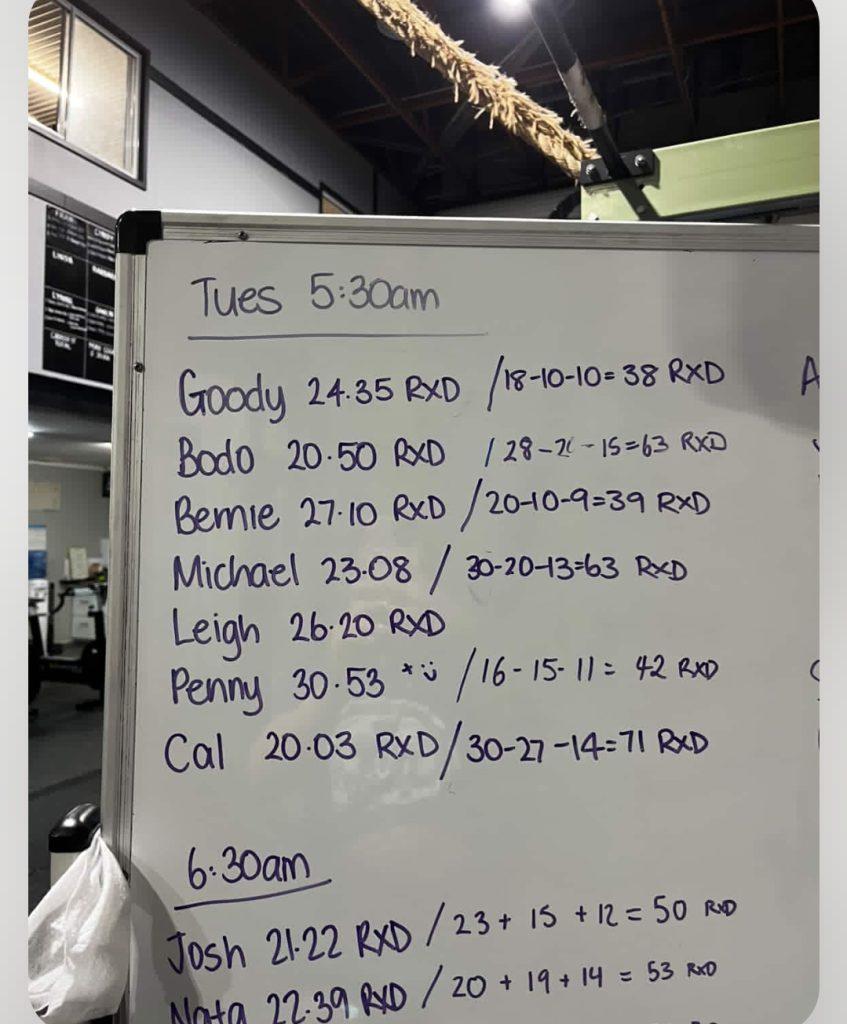 Tues 5:30am
Goody 24.35 RXD /18-10-10=38 RXD
Bodo 20.50 RXD / 28- -15=63 RXD
Bernie 27.10 RXD /20-10-9=39 RXD
Michael 23.08 / 30-20-13=63 RXD
Leigh 26.20 RXD
Penny 30.53 /16-15-11= 42 RXD
Cal 20.03 RXD/30-27-14=71 RXD
6:30am
Josh 21.22 RXD /23+ 15 +12=50 RXD
Nata 22.39 RXD / 20 + 19 + 14 = 53 RXD